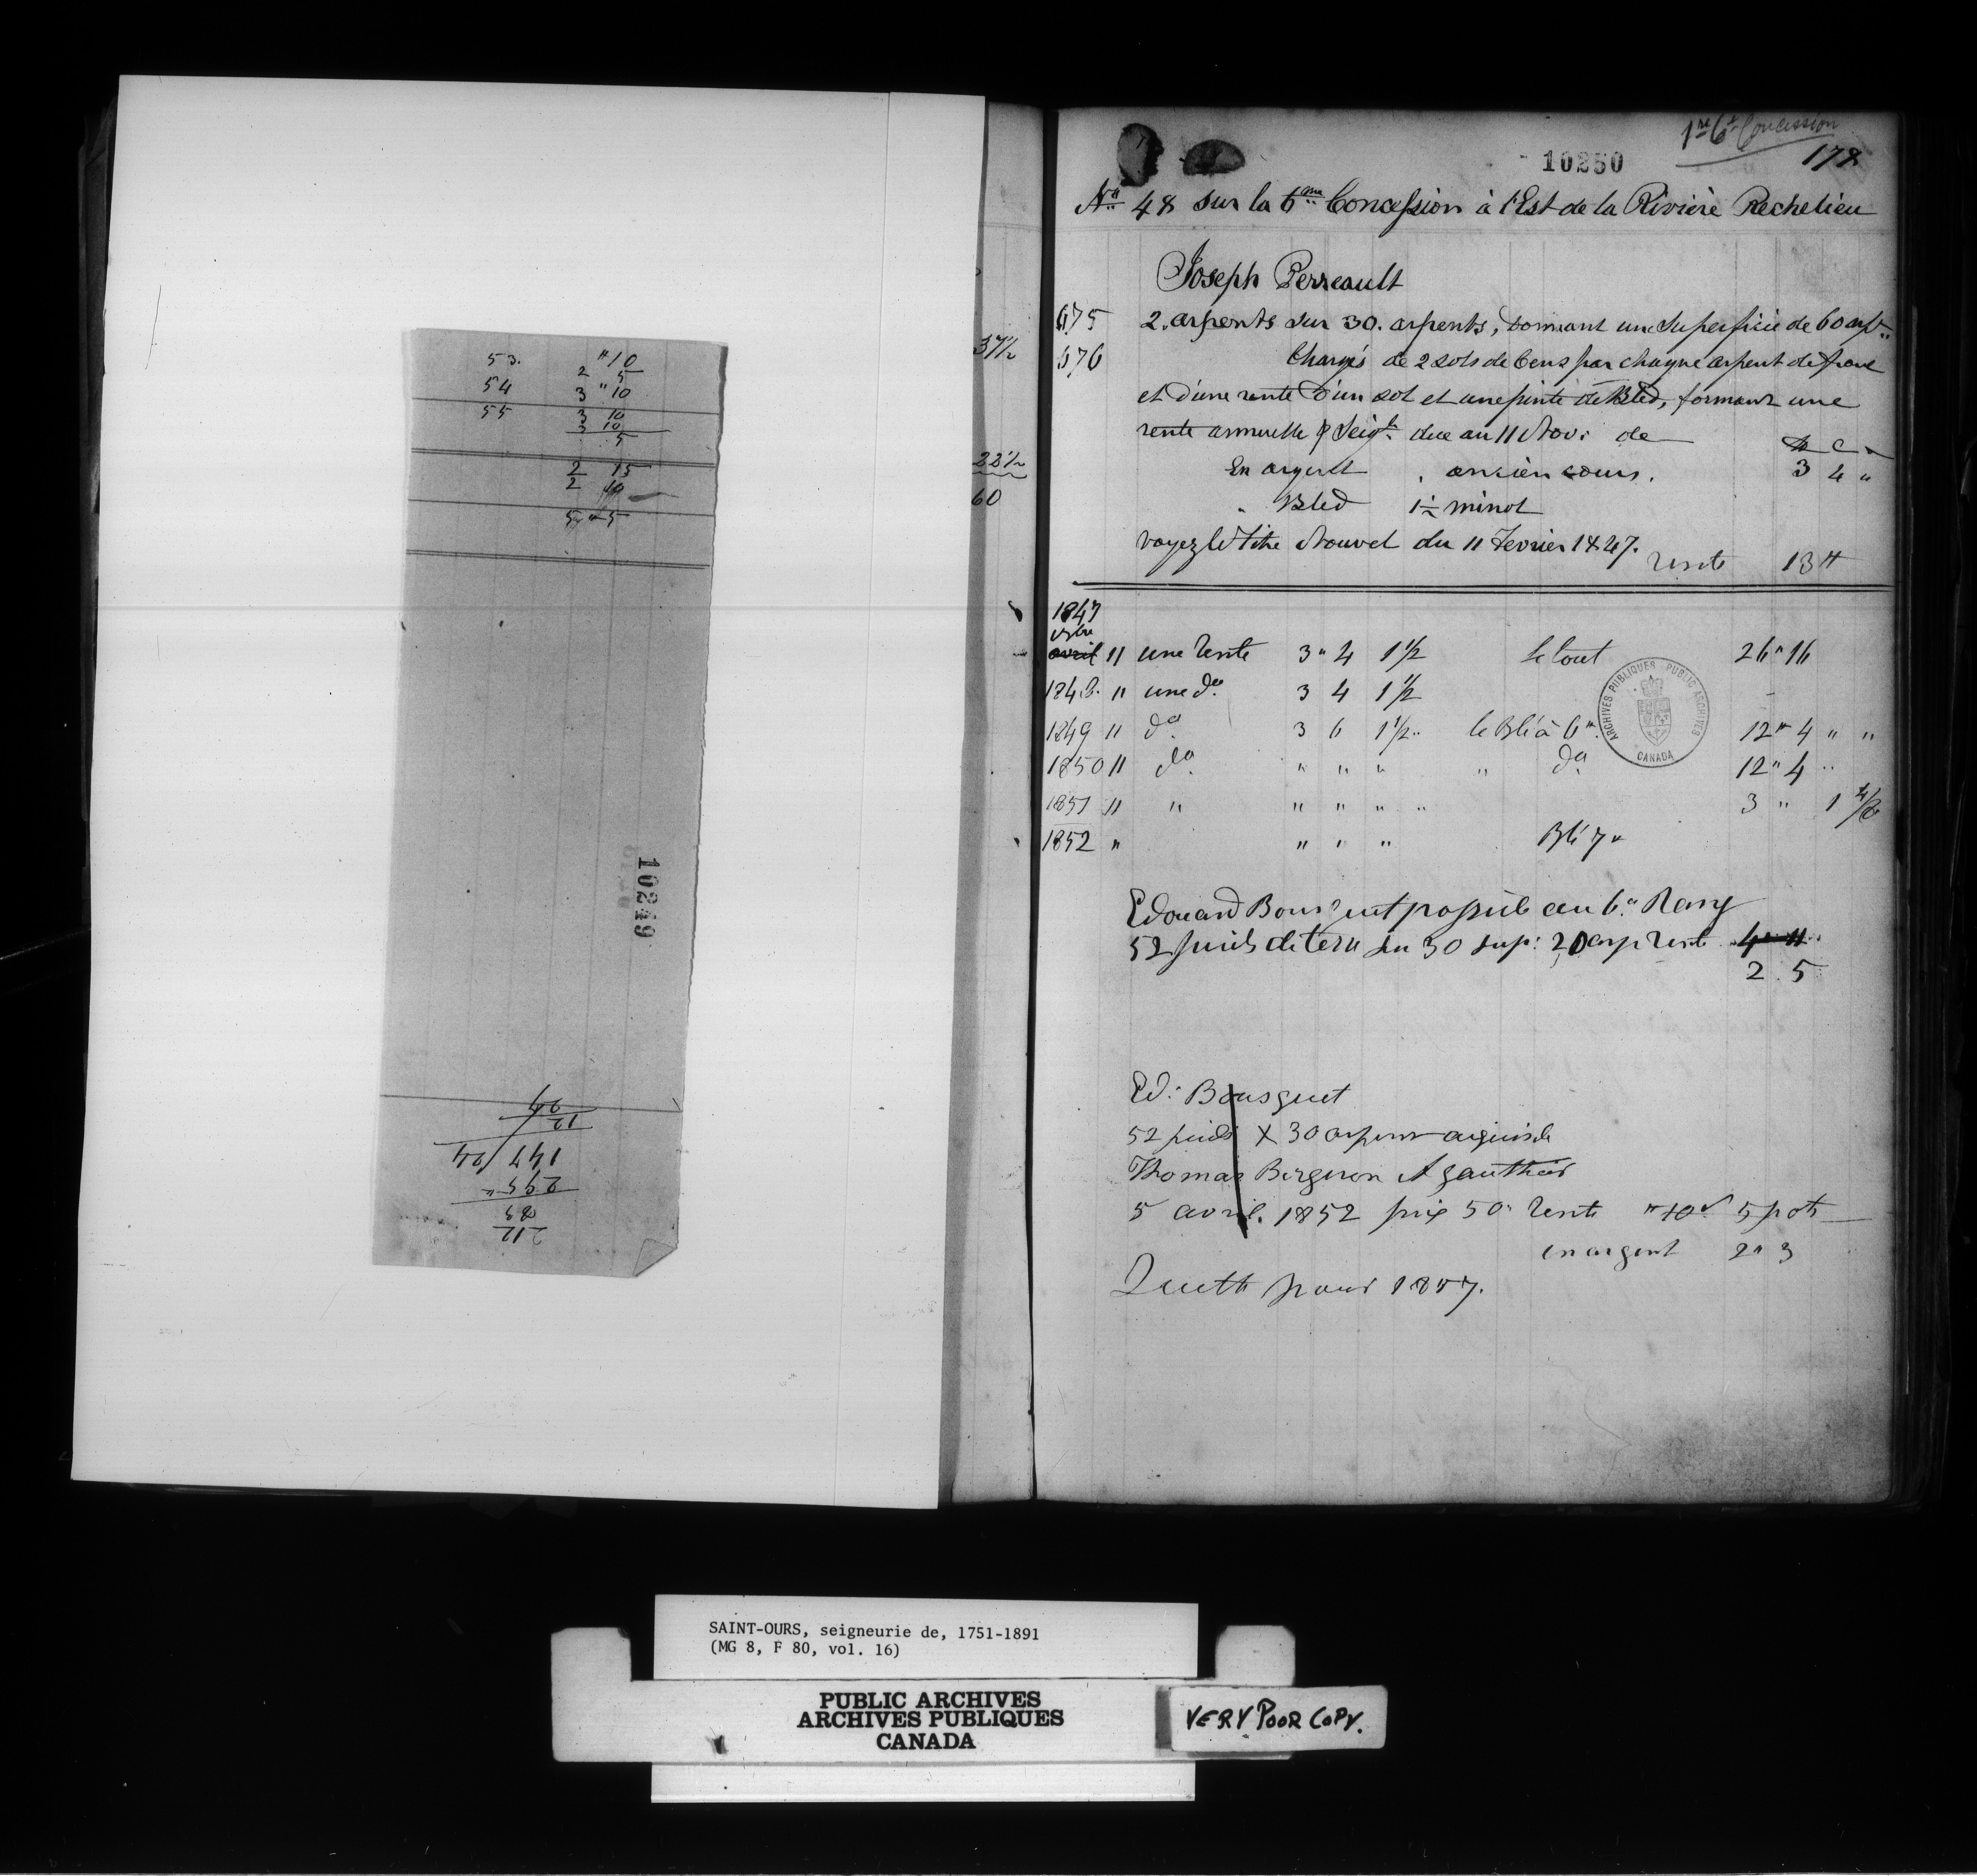 53. " 10
2 5
54 3 " 10
55 3 10
3 10
5
2 15
2 10
5 " 5
10249
37½
22½
60
1re 6e Concession
10250
178
No 48 sur la 6me Concession à l'Est de la Rivière Rechelieu
Joseph Perreault
675 2. arpents sur 30. arpents, donnant une Superficie de 60 arpts
676 Chargés de 2 sols de Cens par chaque arpent de front
et d'une rente d'un sol et une pinte de Bled, formant une
rente annuelle & Seigle due au 11 Nov: de
En argent , ancien cours. 3 4 "
" Bled 1½ minot
voyez le Titre Nouvel du 11 Fevrier 1847.
rente 13 ₶
1847
avril 11 une rente 3 " 4 1½ le tout 26 " 16
1848. " une do 3 4 1½
1849 11 do 3 6 1½ " le Blé à 6 ". 12 " 4 " "
1850 11 do " " " " do 12 " 4 "
1851 11 " " " " " 3 " 1
1852 " " " " Blé 7 "
ARCHIVES PUBLIQUES PUBLIC ARCHIVES
CANADA
Edouard Bousquet possède au 6e Rang
52 pieds de terre sur 30 sup: 20 arp rente 4 " 11
2 . 5
Ed: Bousquet
52 pieds X 30 arpents acquis de
Thomas Bergeron & Gauthier
5 avril. 1852 prix 50 " rente " 10 5 pots
en argent 2 " 3
Quitte pour 1857.
SAINT-OURS, seigneurie de, 1751-1891
(MG 8, F 80, vol. 16)
PUBLIC ARCHIVES
ARCHIVES PUBLIQUES
CANADA
VERY POOR COPY.